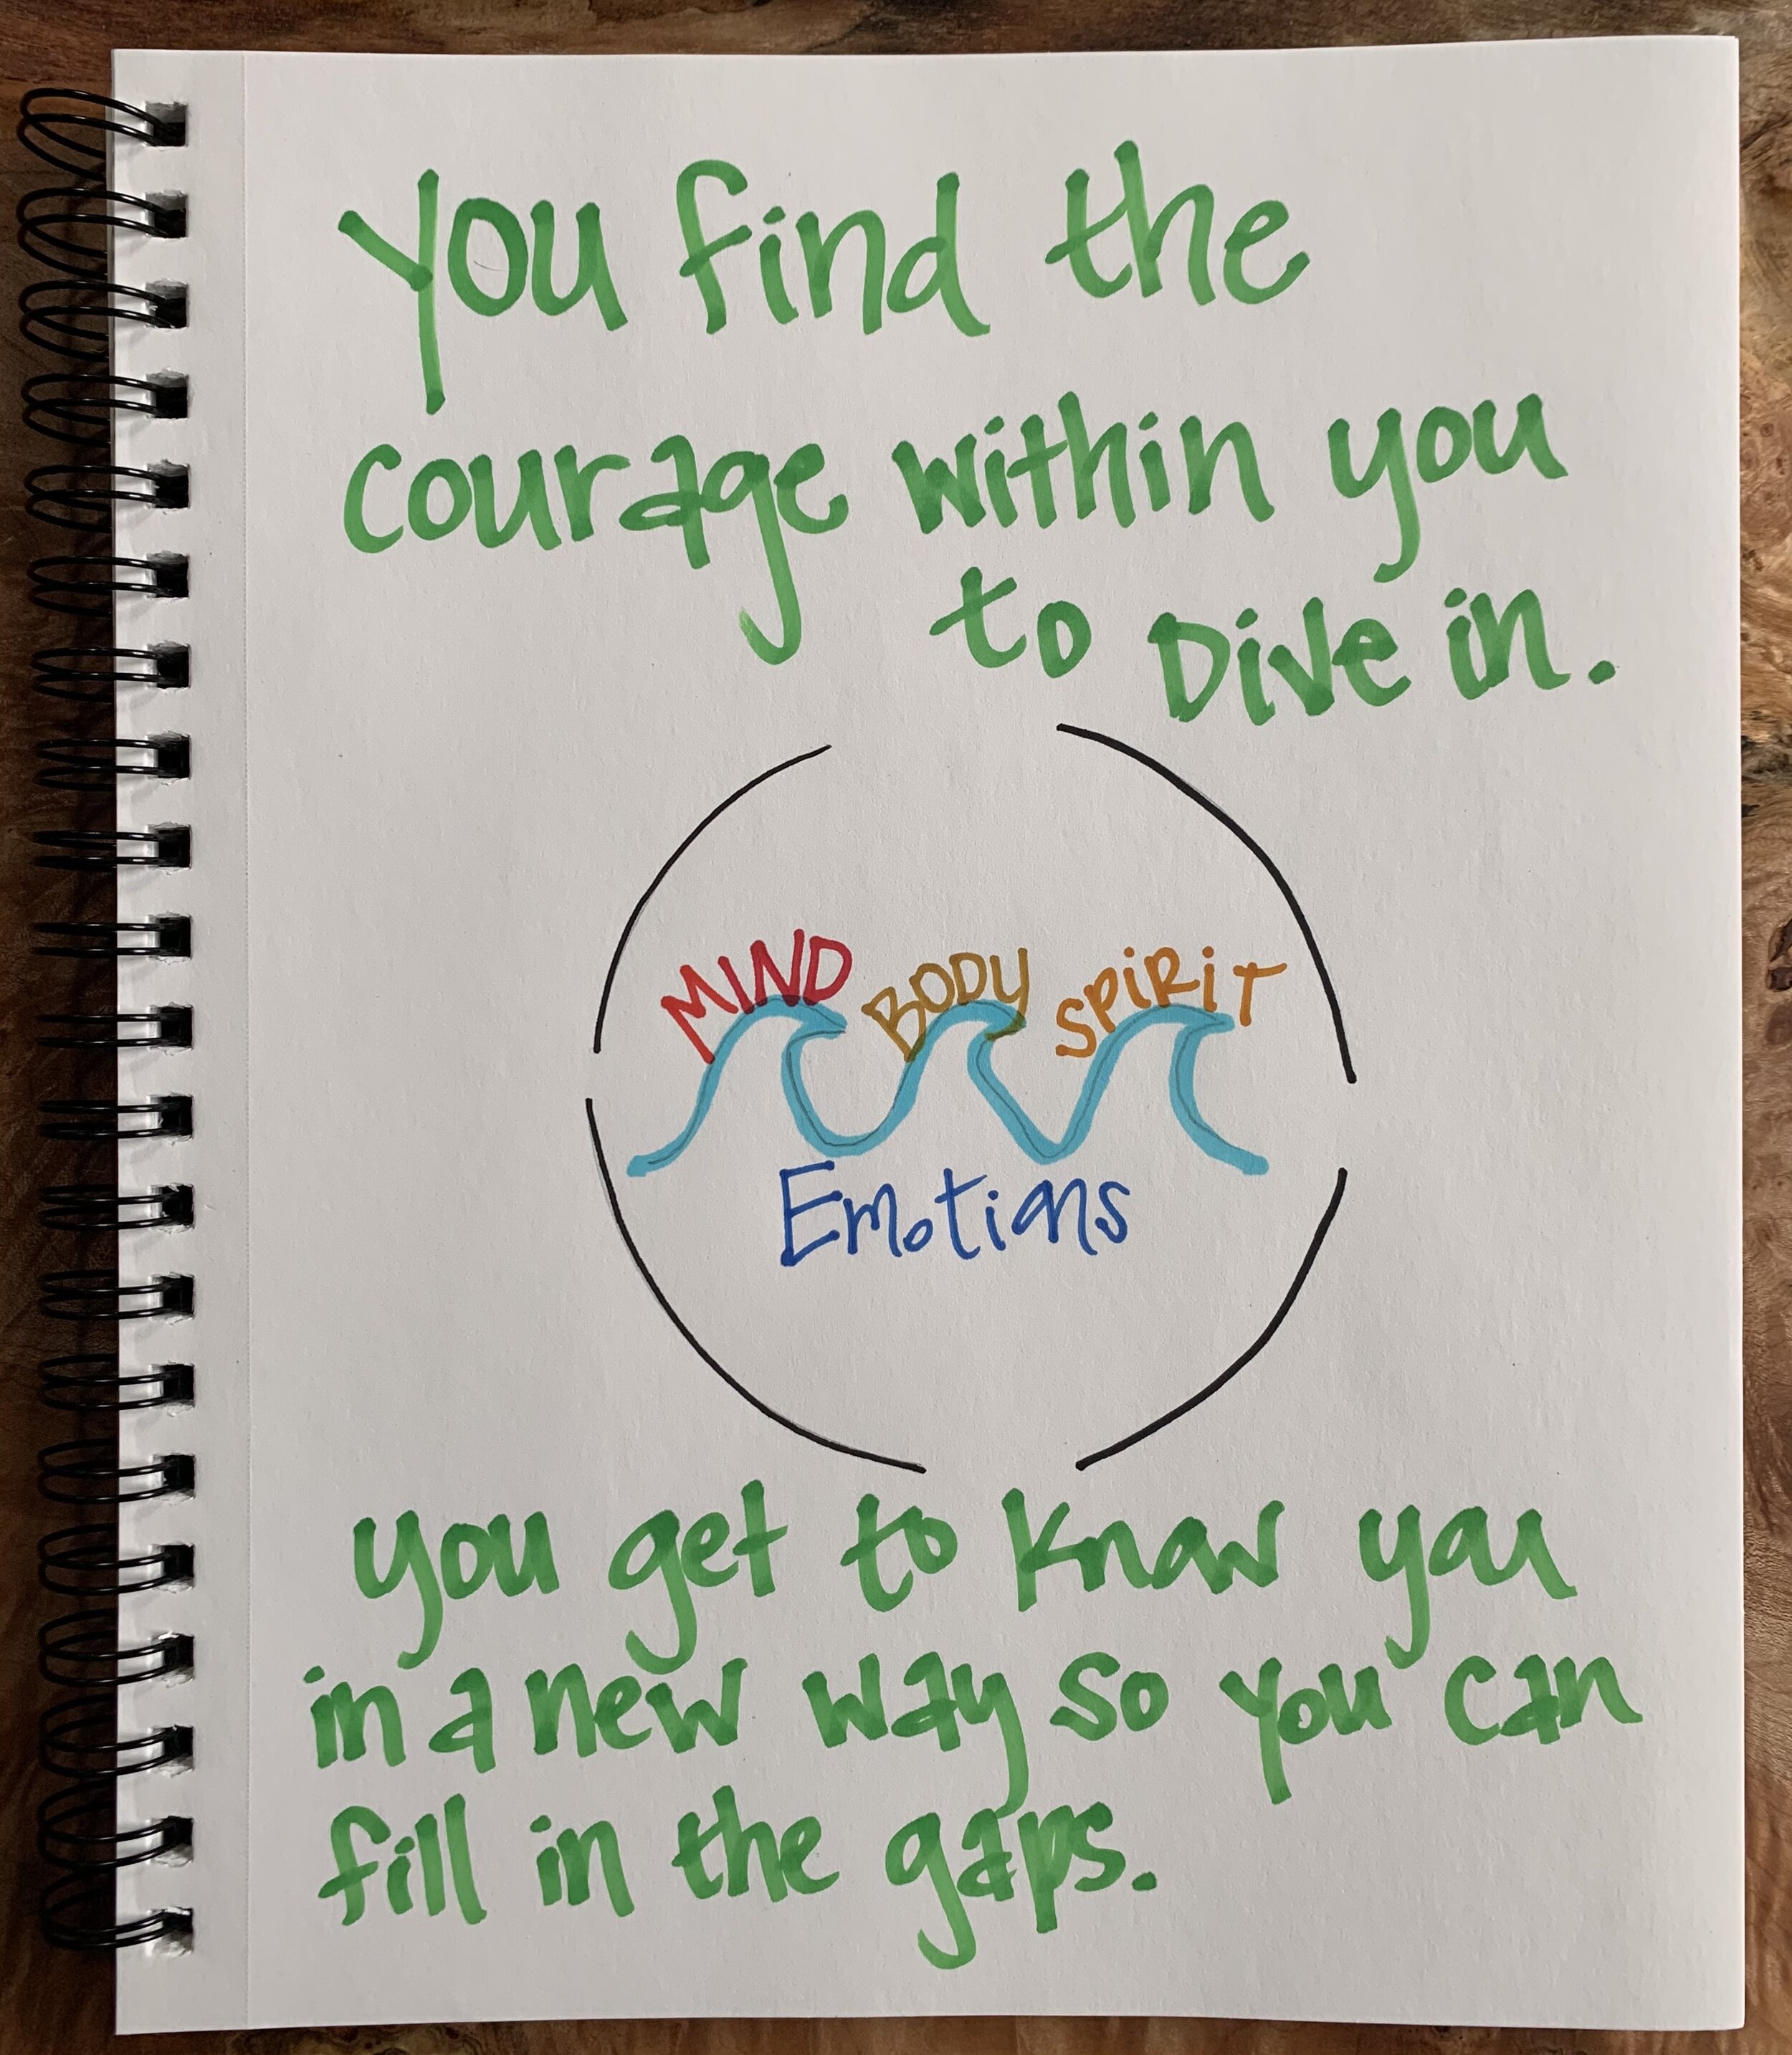 You find the
courage within you
to Dive in.
MIND BODY SPiRiT
Emotions
you get to know you
in a new way so you can
fill in the gaps.